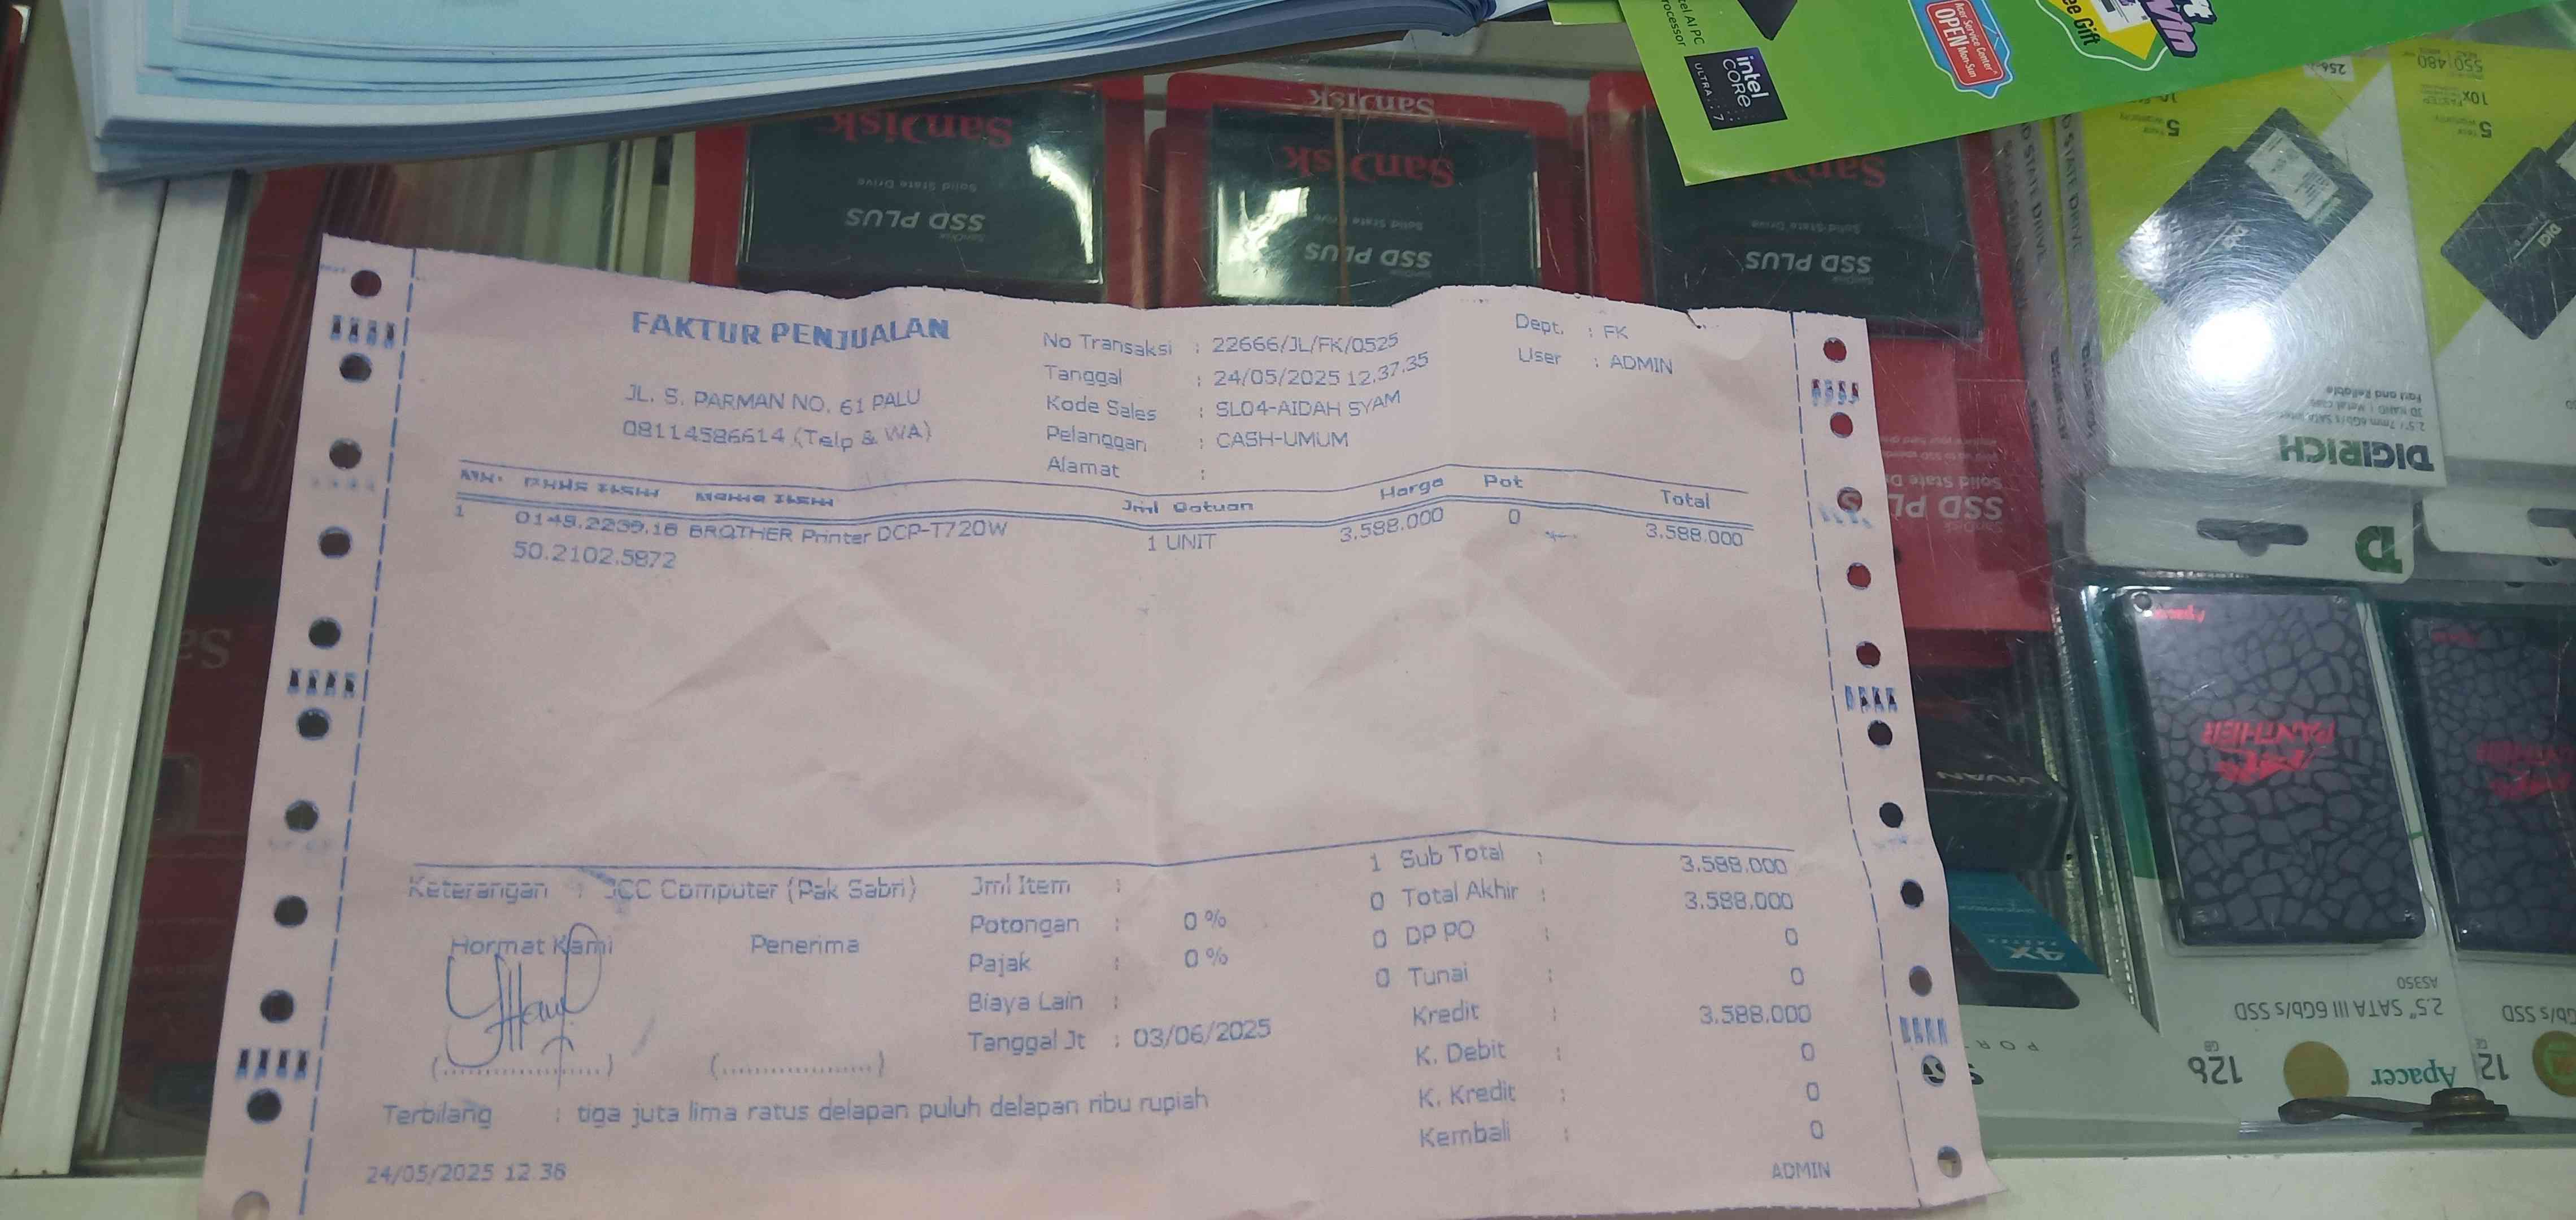 FAKTUR PENJUALAN
JL. S. PARMAN NO. 61 PALU
08114586614 (Telp & WA)
No Transaksi : 22666/JL/FK/0525
Tanggal : 24/05/2025 12.37.35
Kode Sales : SL04-AIDAH SYAM
Pelanggan : CASH-UMUM
Alamat :
Dept. : FK
User : ADMIN
Jml Satuan Harga Pot Total
1 BROTHER Printer DCP-T720W 1 UNIT 3.588.000 0 3.588.000
50.2102.5872
Keterangan : JCC Computer (Pak Sabri)
Hormat Kami Penerima
(....................) (....................)
Jml Item : 1
Potongan : 0 % 0
Pajak : 0 % 0
Biaya Lain : 0
Tanggal Jt : 03/06/2025
Sub Total : 3.588.000
Total Akhir : 3.588.000
DP PO : 0
Tunai : 0
Kredit : 3.588.000
K. Debit : 0
K. Kredit : 0
Kembali : 0
Terbilang : tiga juta lima ratus delapan puluh delapan ribu rupiah
24/05/2025 12.38
ADMIN
SanDisk
SanDisk
SanDisk
Solid State Drive
SSD PLUS
SanDisk
Solid State Drive
SSD PLUS
Solid State Drive
SSD PLUS
intel
CORE
ULTRA 7
Acer Service Center
OPEN
Mon-Sun
ee Gift
Win
256
550 480
10x
5
5
DIGI
DIGI
Fast and Reliable
DIGIRICH
SSD PL
VIVAN
4X
Apacer
PANTHER
AS350
2.5" SATA III 6Gb/s SSD
128
Apacer